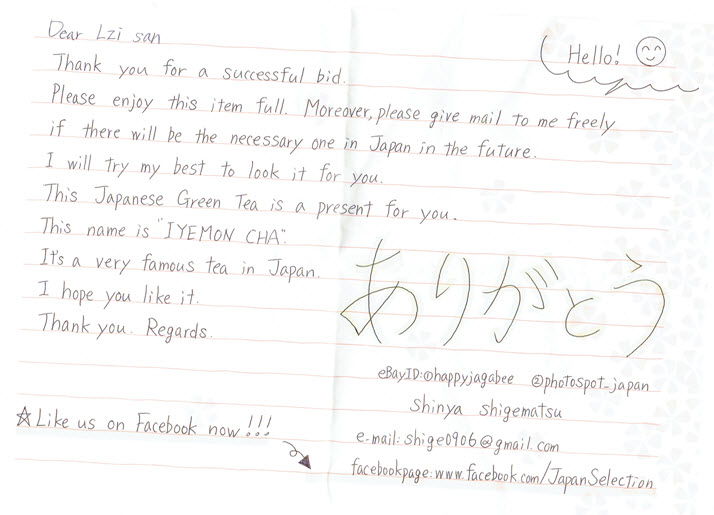 Dear Lzi san
Hello!
Thank you for a successful bid.
Please enjoy this item full. Moreover, please give mail to me freely
if there will be the necessary one in Japan in the future.
I will try my best to look it for you.
This Japanese Green Tea is a present for you.
This name is "IYEMON CHA".
It's a very famous tea in Japan.
I hope you like it.
Thank you. Regards.
ありがとう
eBayID:①happyjagabee ②photospot_japan
Shinya Shigematsu
☆Like us on Facebook now!!!
e-mail:shige0906@gmail.com
facebookpage:www.facebook.com/JapanSelection